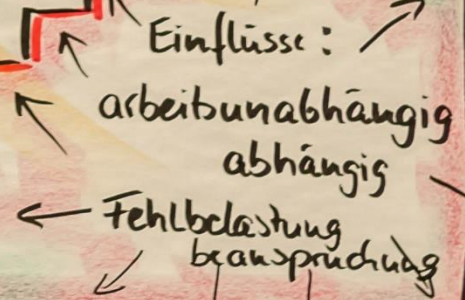 Einflüsse:
arbeitsunabhängig
abhängig
Fehlbelastung
beanspruchung